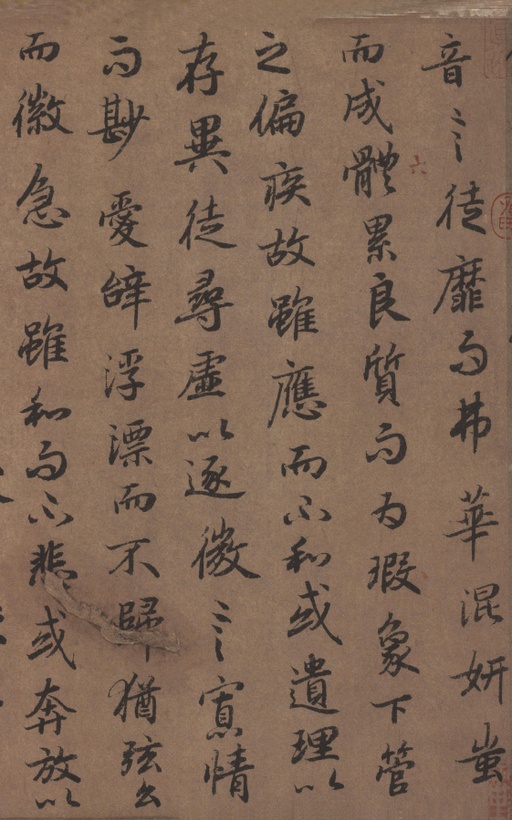 音言徒靡而弗華混妍蚩
而成體累良質而為瑕象下管
之偏疾故雖應而不和或遺理以
存異徒尋虛以逐微言寡情
而尠愛辭浮漂而不歸猶弦么
而徽急故雖和而不悲或奔放以